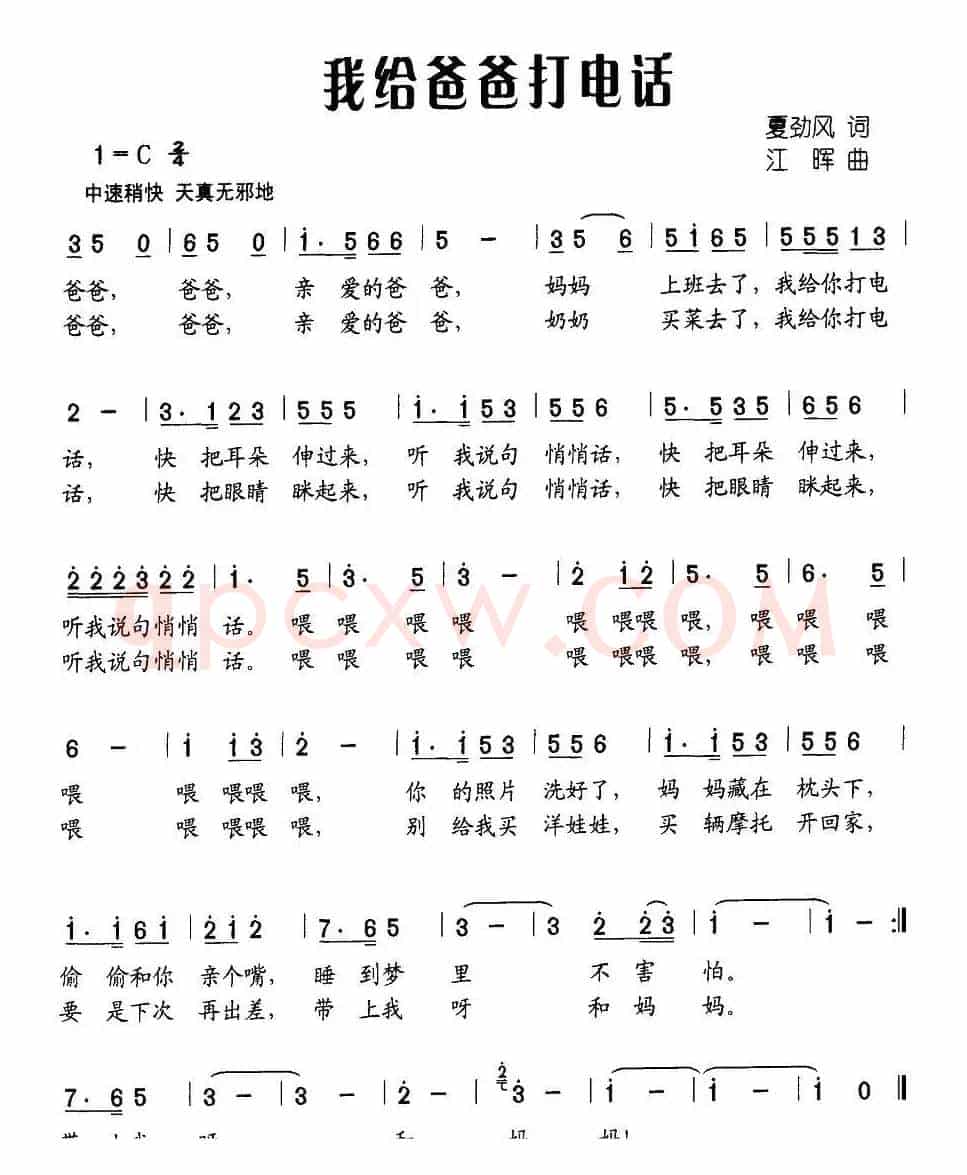 我给爸爸打电话
夏劲风 词
1=C 2/4
江 晖 曲
中速稍快 天真无邪地
3 5 0 | 6 5 0 | i· 5 6 6 | 5 - | 3 5 6 | 5 i 6 5 | 5 5 5 1 3 |
爸爸, 爸爸, 亲 爱的爸 爸, 妈妈 上班去了, 我给你打电
爸爸, 爸爸, 亲 爱的爸 爸, 奶奶 买菜去了, 我给你打电
2 - | 3· 1 2 3 | 5 5 5 | i· i 5 3 | 5 5 6 | 5· 5 3 5 | 6 5 6 |
话, 快 把耳朵 伸过来, 听 我说句 悄悄话, 快 把耳朵 伸过来,
话, 快 把眼睛 眯起来, 听 我说句 悄悄话, 快 把眼睛 眯起来,
2̇ 2̇ 2̇ 3̇ 2̇ 2̇ | i· 5 | 3̇· 5 | 3̇ - | 2̇ i 2̇ | 5· 5 | 6· 5 |
听我说句悄悄 话。 喂 喂 喂 喂 喂 喂喂 喂, 喂 喂 喂
听我说句悄悄 话。 喂 喂 喂 喂 喂 喂喂 喂, 喂 喂 喂
qpcxw.com
6 - | i i 3̇ | 2̇ - | i· i 5 3 | 5 5 6 | i· i 5 3 | 5 5 6 |
喂 喂 喂喂 喂, 你 的照片 洗好了, 妈 妈藏在 枕头下,
喂 喂 喂喂 喂, 别 给我买 洋娃娃, 买 辆摩托 开回家,
i· i 6 i | 2̇ i 2̇ | 7· 6 5 | 3̇ - | 3̇ 2̇ 2̇ 3̇ | i - | i - :‖
偷 偷和你 亲个嘴, 睡 到梦 里 不 害 怕。
要 是下次 再出差, 带 上我 呀 和 妈 妈。
7· 6 5 | 3̇ - | 3̇ - | 2̇ - | 2̇ 3̇ - | i - | i - | i 0 ‖